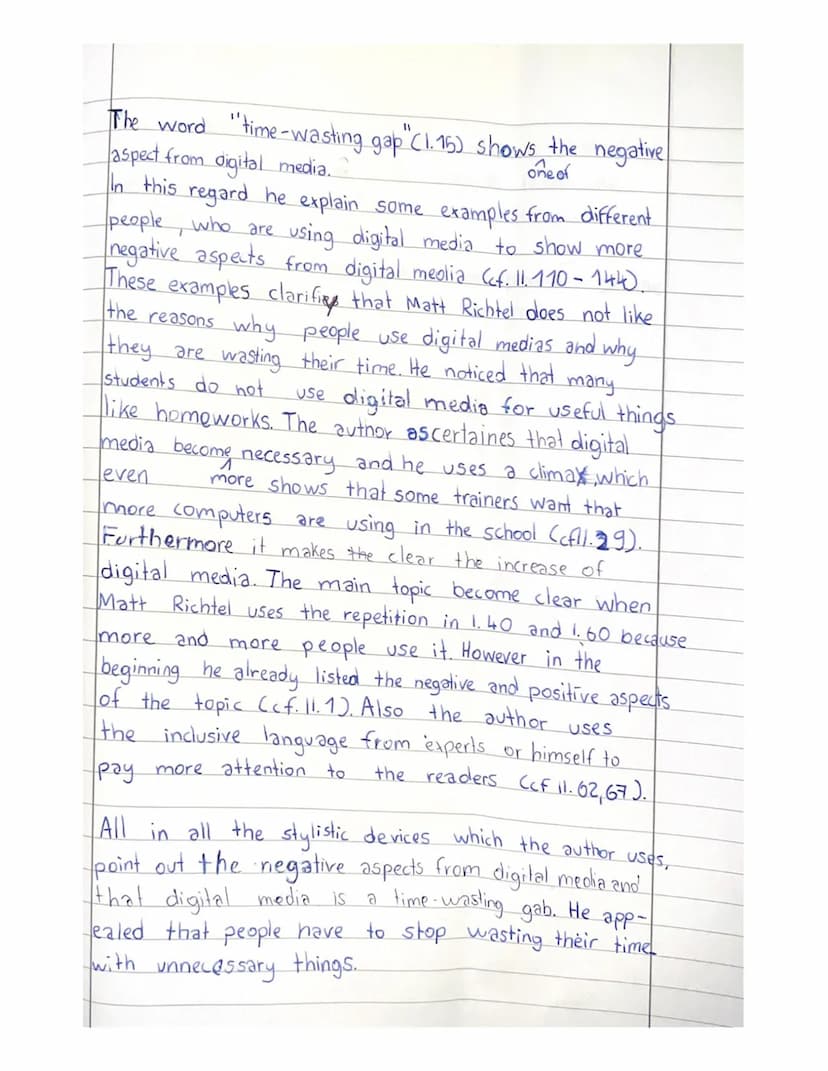 The word "time-wasting gap" (l.15) shows the negative
one of
aspect from digital media.
In this regard he explain some examples from different
people, who are using digital media to show more
negative aspects from digital media (cf. ll. 110 - 144).
These examples clarify that Matt Richtel does not like
the reasons why people use digital medias and why
they are wasting their time. He noticed that many
students do not use digital media for useful things
like homeworks. The author ascertaines that digital
media become necessary and he uses a climax, which
even more shows that some trainers want that
more computers are using in the school (cf ll. 29).
Furthermore it makes the clear the increase of
digital media. The main topic become clear when
Matt Richtel uses the repetition in l. 40 and l. 60 because
more and more people use it. However in the
beginning he already listed the negative and positive aspects
of the topic (cf. ll. 1). Also the author uses
the inclusive language from experts or himself to
pay more attention to the readers (cf ll. 62, 67).
All in all the stylistic devices which the author uses,
point out the negative aspects from digital media and
that digital media is a time-wasting gab. He app-
ealed that people have to stop wasting their time
with unnecassary things.